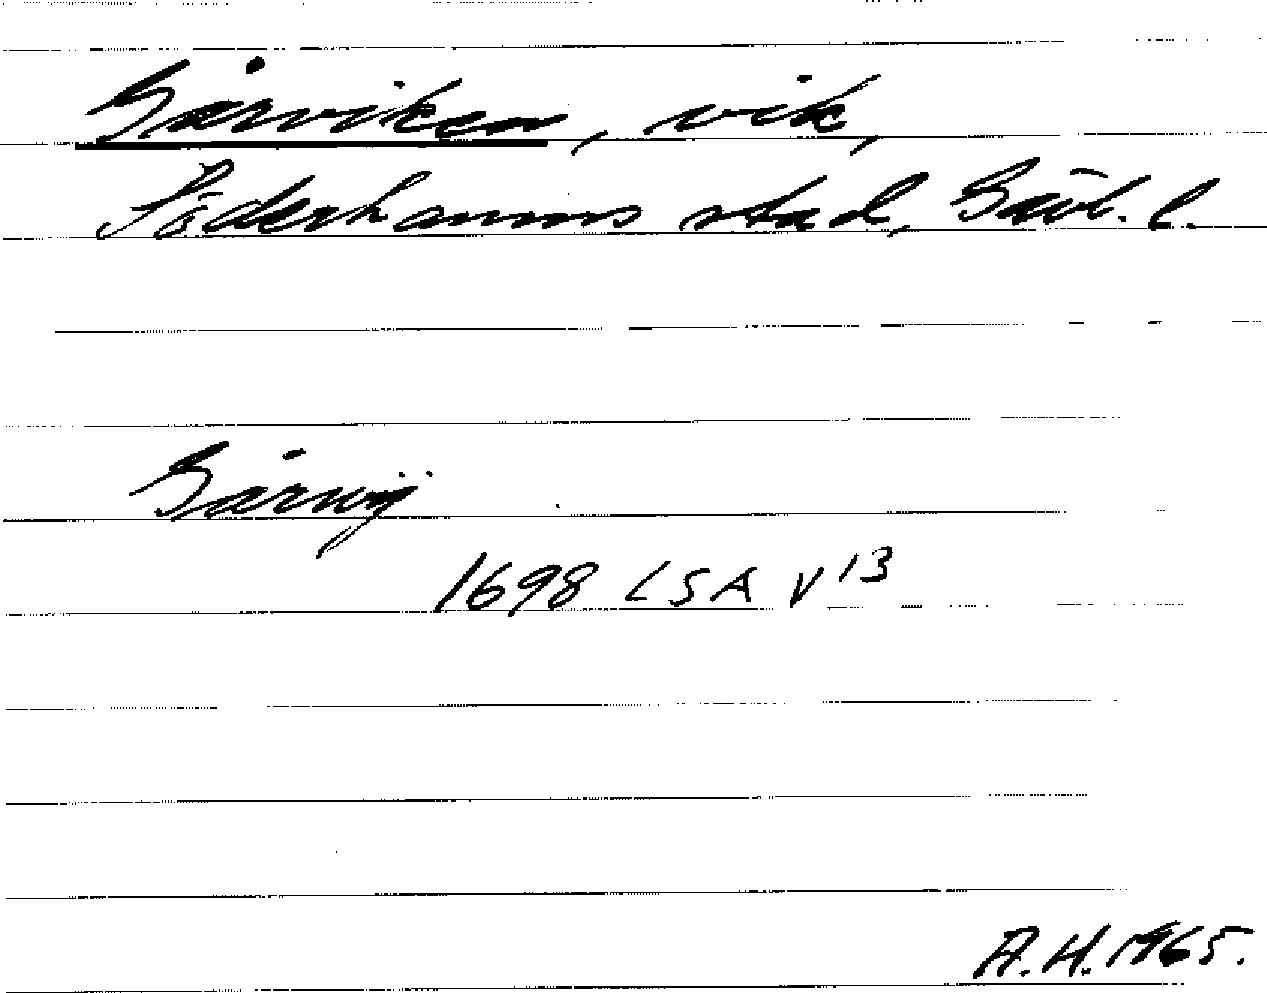 Gårviken, vik,
Söderhamns stad, Gävl. l.
Gårwij
1698 LSA V 13
A.H. 1965.